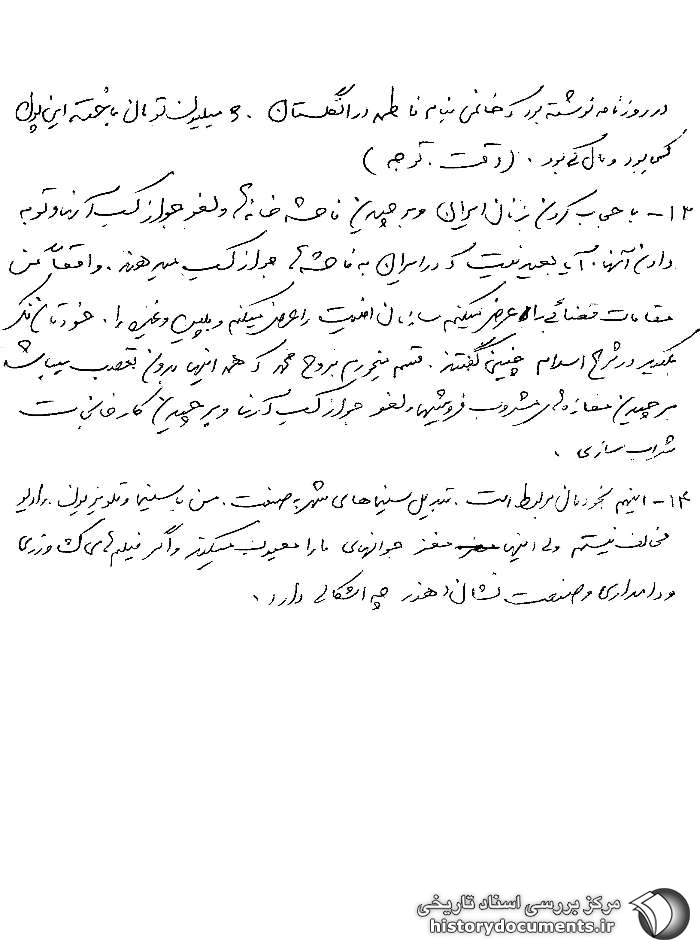 در روزنامه نوشته بود که خانمی بنام فاطمه در انگلستان ۳۰ میلیون تومان باخته این پول
کی بود و مال کی بود. (دقت. توجه)
۱۳- با حجاب کردن زنان ایران و برچیدن فاحشه خانه‌ها و لغو جواز کسب آنها و توبه
دادن آنها. آیا بعید نیست که در ایران به فاحشه‌ها جواز کسب میدهند. واقعاً من
مقامات قضائی را عرض میکنم سازمان امنیت را عرض میکنم و پلیس و غیره را. خودتان فکر
بکنید در شرع اسلام چنین گفتند. قسم میخورم بروح محمد که همه اینها بدون تعصب میباشد
برچیدن مغازه‌های مشروب فروشیها و لغو جواز کسب آنها و برچیدن کارخانجات
شراب سازی.
۱۴- اینهم بخودمان مربوط است. تبدیل سینماهای شهر به صنعت. من با سینما و تلویزیون. رادیو
مخالف نیستم ولی اینها مغز جوانهای ما را معیوب میکند و اگر فیلم‌های کشاورزی
و دامداری و صنعت نشان دهند چه اشکالی دارد.
مرکز بررسی اسناد تاریخی
historydocuments.ir